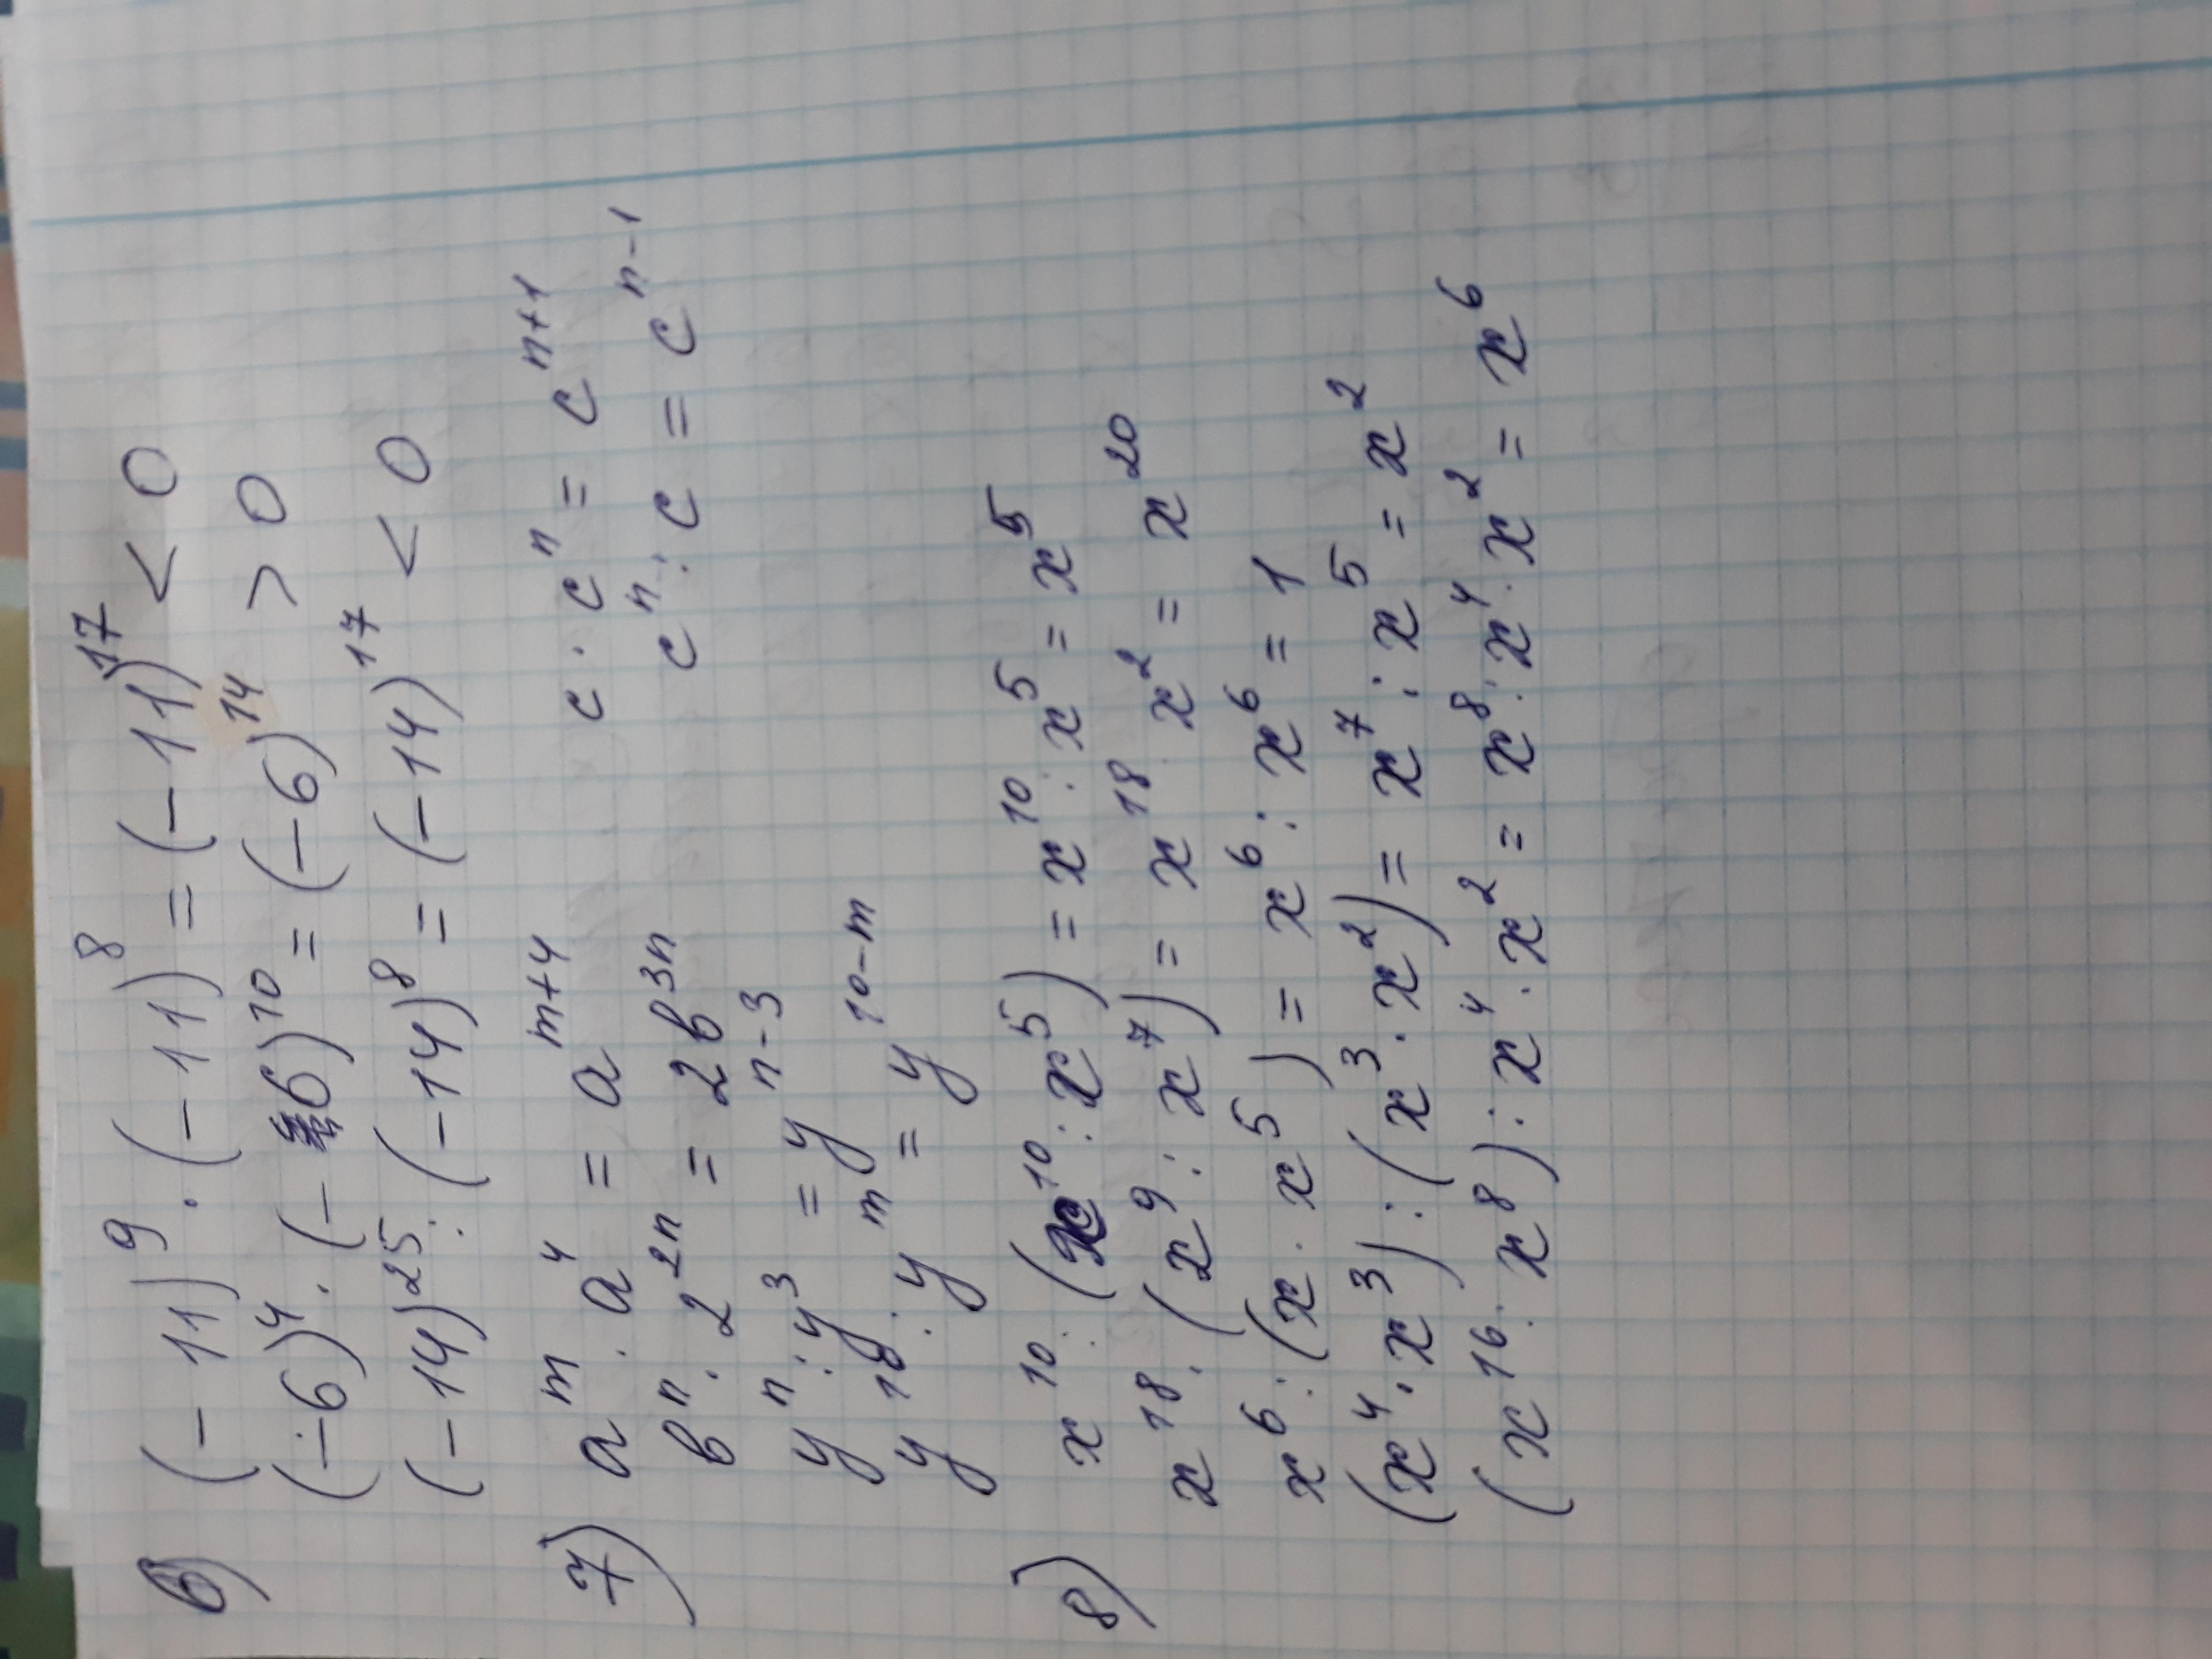 6) (-11)⁹ · (-11)⁸ = (-11)¹⁷ < 0
(-6)⁴ · (-6)¹⁰ = (-6)¹⁴ > 0
(-14)²⁵ : (-14)⁸ = (-14)¹⁷ < 0
7) aᵐ · a⁴ = aᵐ⁺⁴ c · cⁿ = cⁿ⁺¹
вⁿ · 2²ⁿ = 2в³ⁿ cⁿ : c = cⁿ⁻¹
yⁿ : y³ = yⁿ⁻³
y¹⁰ : yᵐ = y¹⁰⁻ᵐ
8) x¹⁰ : (x¹⁰ : x⁵) = x¹⁰ : x⁵ = x⁵
x¹⁸ · (x⁹ : x⁷) = x¹⁸ · x² = x²⁰
x⁶ : (x · x⁵) = x⁶ : x⁶ = 1
(x⁴ · x³) : (x³ · x²) = x⁷ : x⁵ = x²
(x¹⁶ : x⁸) : x⁴ · x² = x⁸ : x⁴ · x² = x⁶